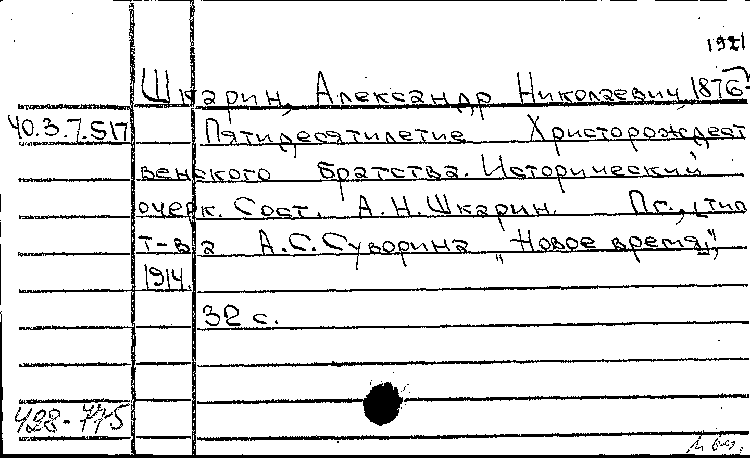 1921
Шкарин, Александр Николаевич, 1876-
40.3.7.517 Пятидесятилетие Христорождест
венского братства. Исторический
очерк. Сост. А.Н.Шкарин. Пг., тип
т-ва А.С.Суворина „Новое время",
1914.
32 с.
428-775